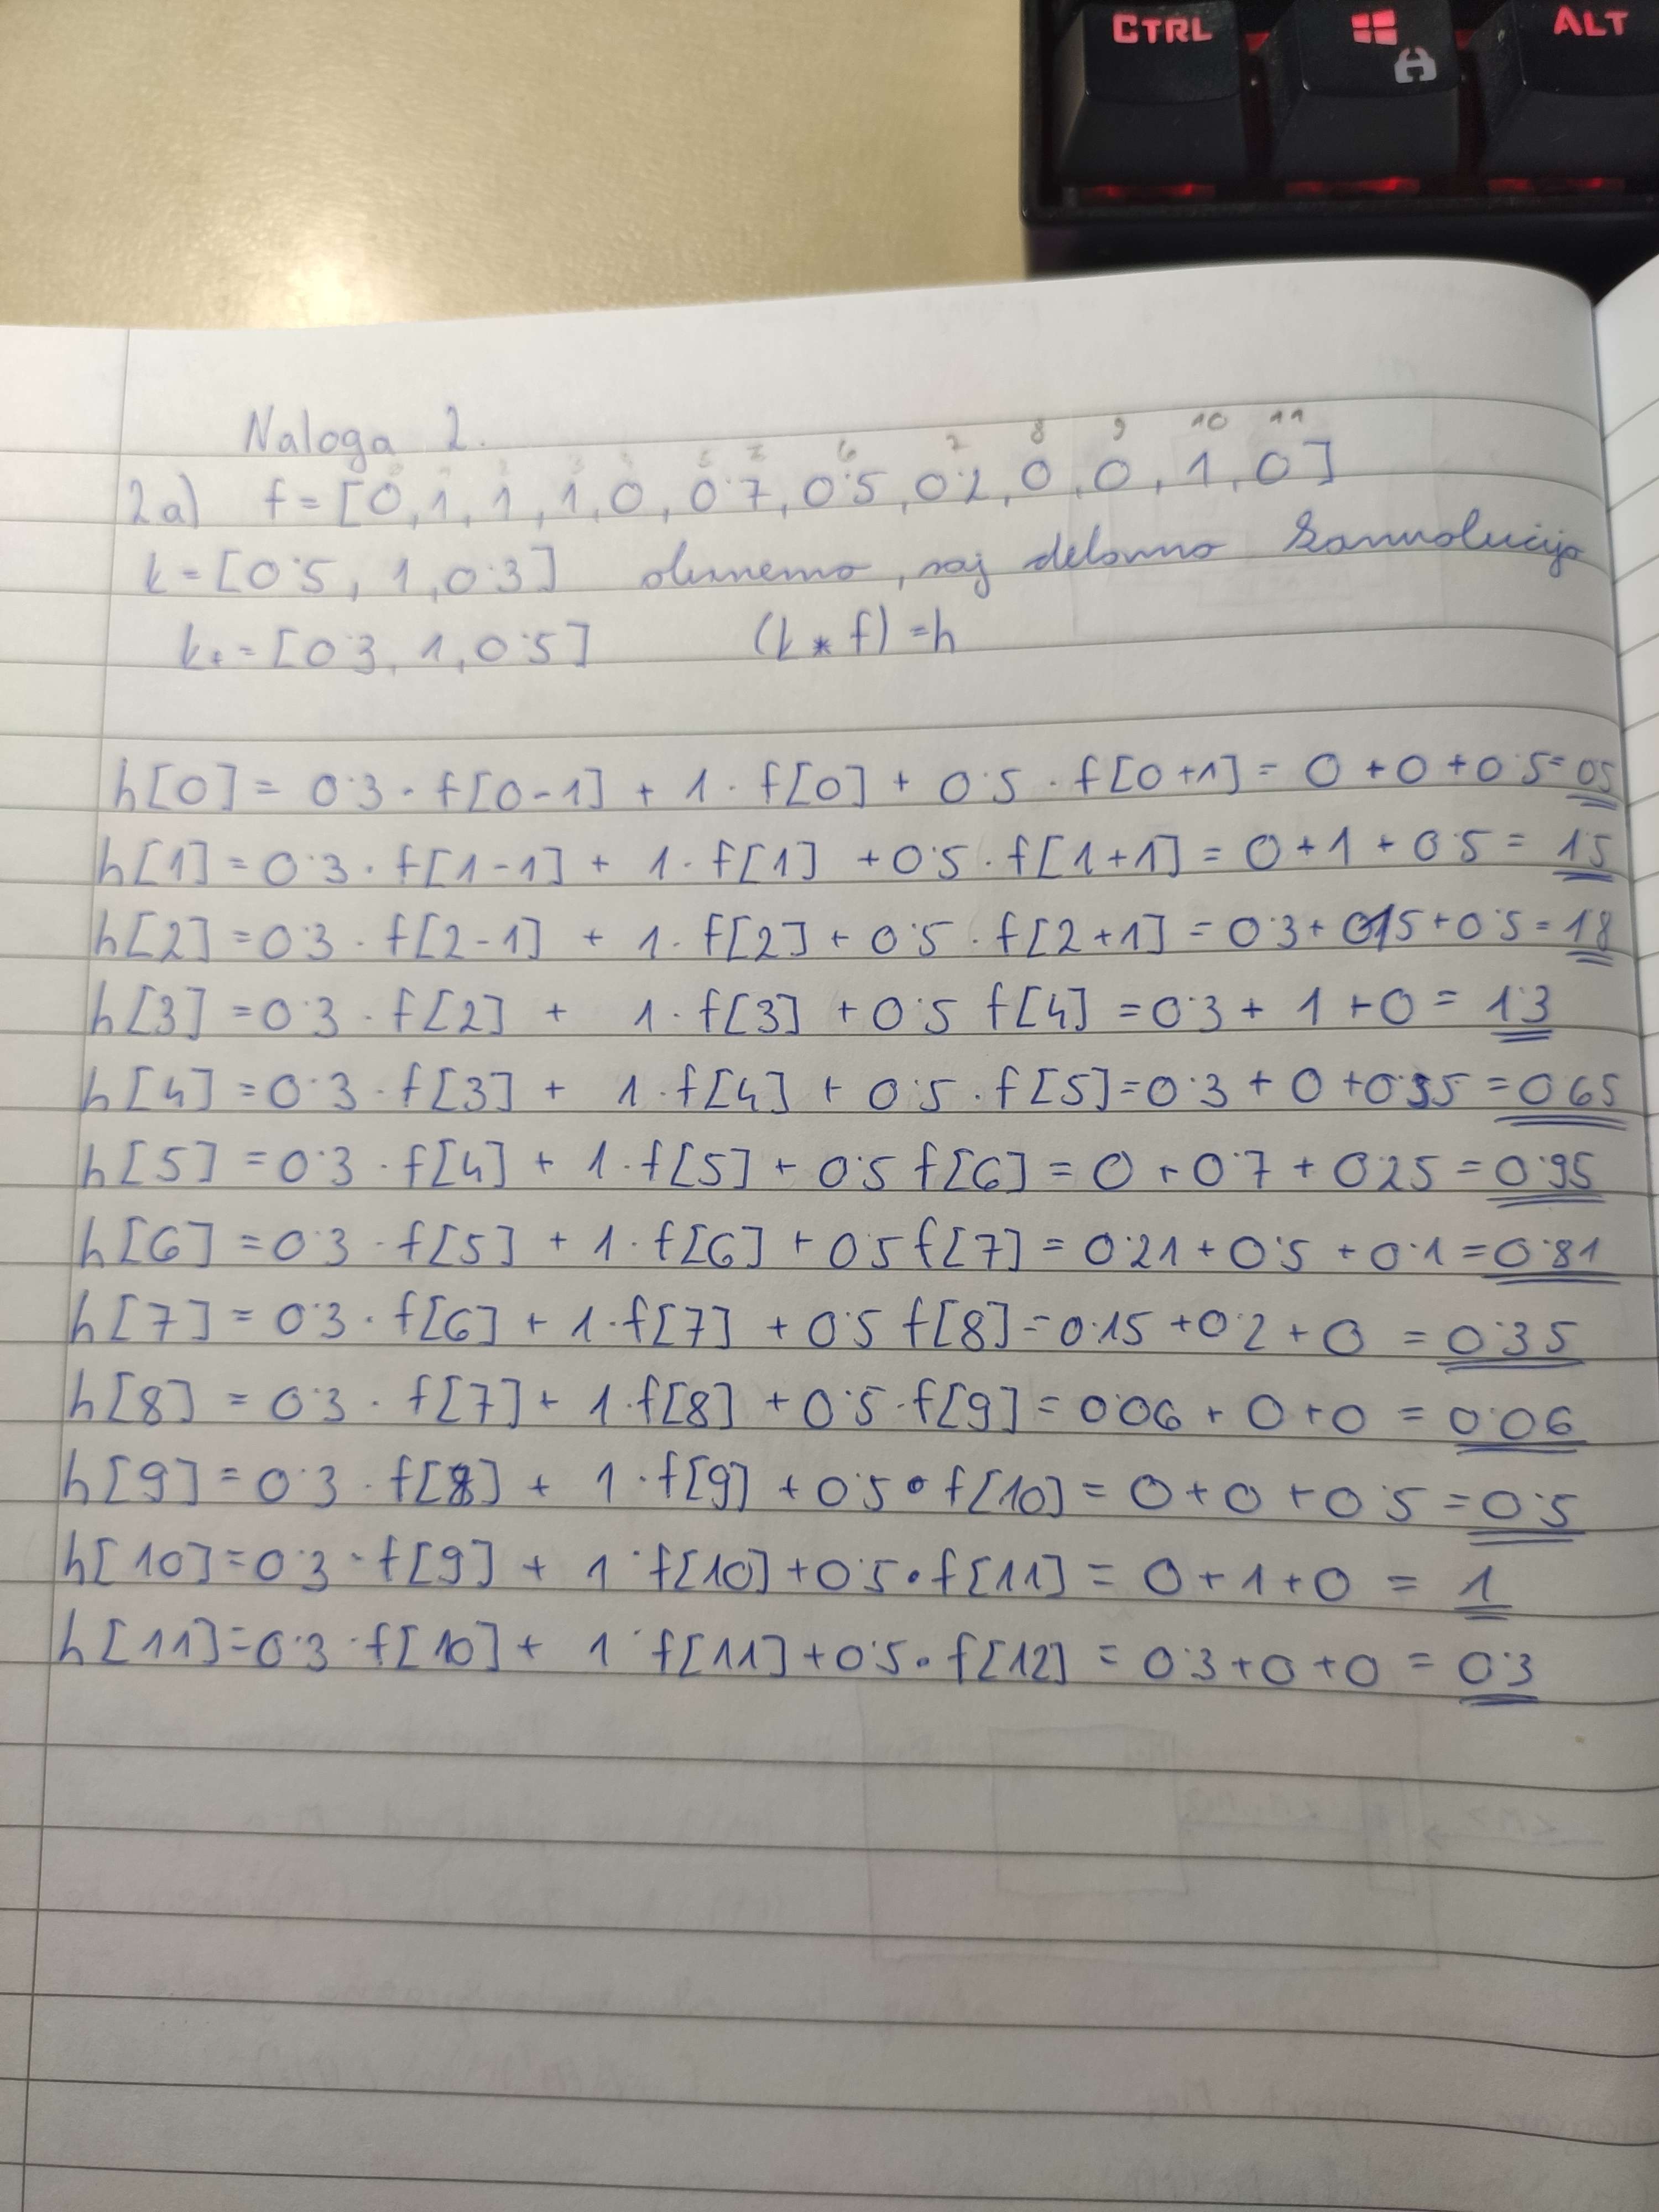 CTRL ALT
Naloga 2.
0 1 2 3 4 5 6 7 8 9 10 11
2a) f = [0, 1, 1, 1, 0, 0.7, 0.5, 0.2, 0, 0, 1, 0]
k = [0.5, 1, 0.3] obrnemo, saj delamo konvolucijo
k* = [0.3, 1, 0.5] (k * f) = h
h[0] = 0.3 · f[0-1] + 1 · f[0] + 0.5 · f[0+1] = 0 + 0 + 0.5 = 0.5
h[1] = 0.3 · f[1-1] + 1 · f[1] + 0.5 · f[1+1] = 0 + 1 + 0.5 = 1.5
h[2] = 0.3 · f[2-1] + 1 · f[2] + 0.5 · f[2+1] = 0.3 + + 0.5 = 1.8
h[3] = 0.3 · f[2] + 1 · f[3] + 0.5 f[4] = 0.3 + 1 + 0 = 1.3
h[4] = 0.3 · f[3] + 1 · f[4] + 0.5 · f[5] = 0.3 + 0 + 0.35 = 0.65
h[5] = 0.3 · f[4] + 1 · f[5] + 0.5 f[6] = 0 + 0.7 + 0.25 = 0.95
h[6] = 0.3 · f[5] + 1 · f[6] + 0.5 f[7] = 0.21 + 0.5 + 0.1 = 0.81
h[7] = 0.3 · f[6] + 1 · f[7] + 0.5 f[8] = 0.15 + 0.2 + 0 = 0.35
h[8] = 0.3 · f[7] + 1 · f[8] + 0.5 · f[9] = 0.06 + 0 + 0 = 0.06
h[9] = 0.3 · f[8] + 1 · f[9] + 0.5 · f[10] = 0 + 0 + 0.5 = 0.5
h[10] = 0.3 · f[9] + 1 · f[10] + 0.5 · f[11] = 0 + 1 + 0 = 1
h[11] = 0.3 · f[10] + 1 · f[11] + 0.5 · f[12] = 0.3 + 0 + 0 = 0.3